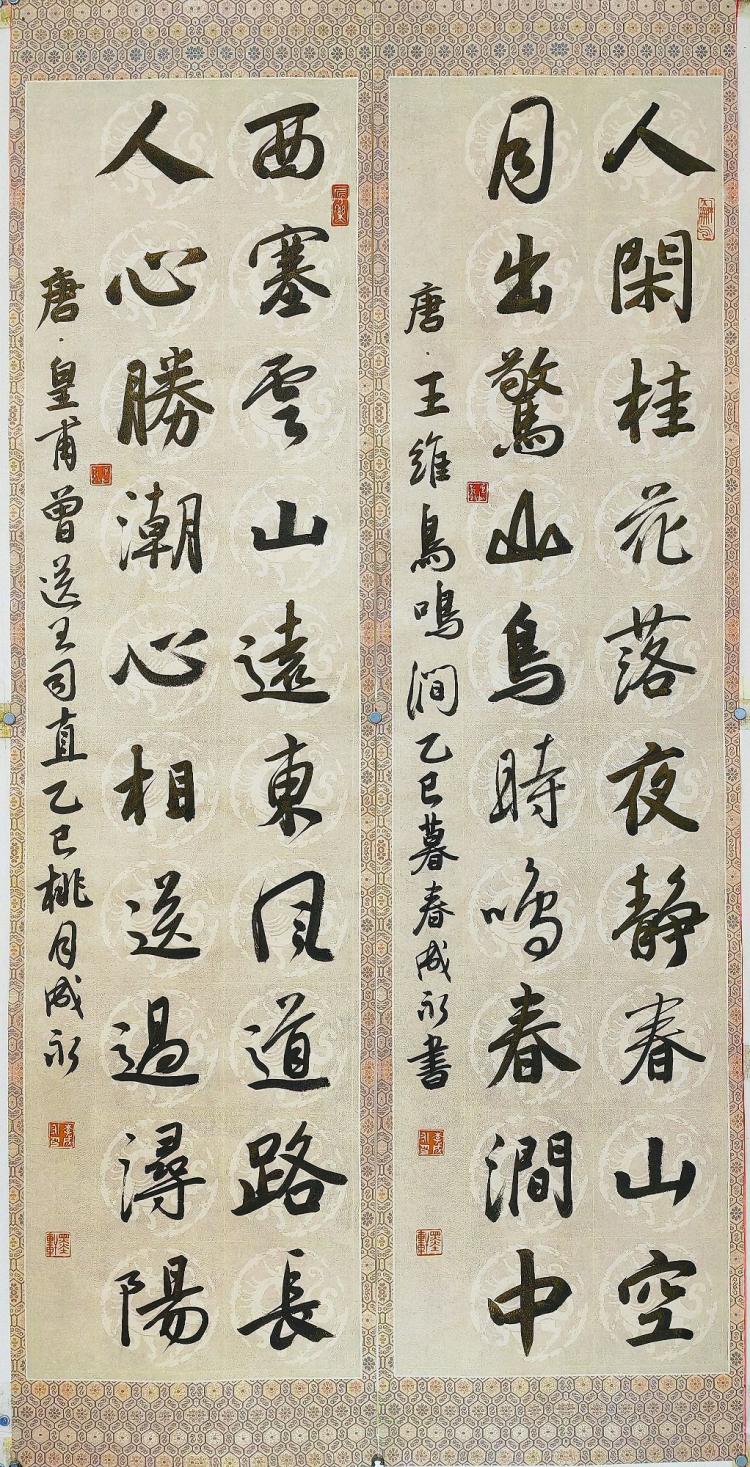 人閑桂花落夜静春山空
月出驚山鳥時鳴春澗中
唐·王維鳥鳴澗乙巳暮春成永書
西塞雲山遠東风道路長
人心勝潮心相送過潯陽
唐·皇甫曾送王司直乙巳桃月成永